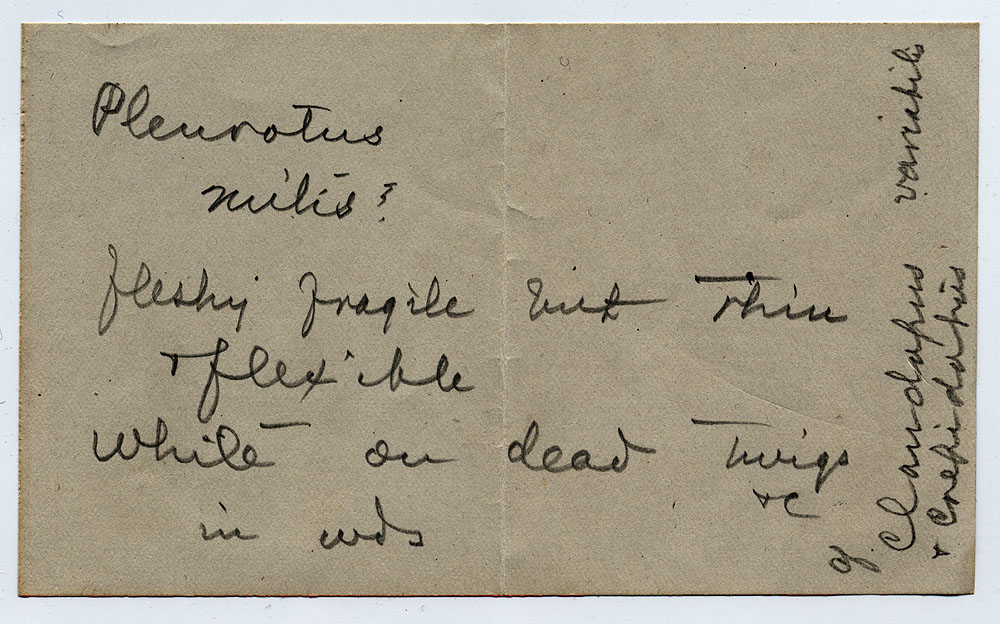 Pleurotus
mitis?
fleshy fragile but thin
+ flexible
white on dead twigs
+c
in wds
cf
Claudopus variabilis
+ Crepidotus